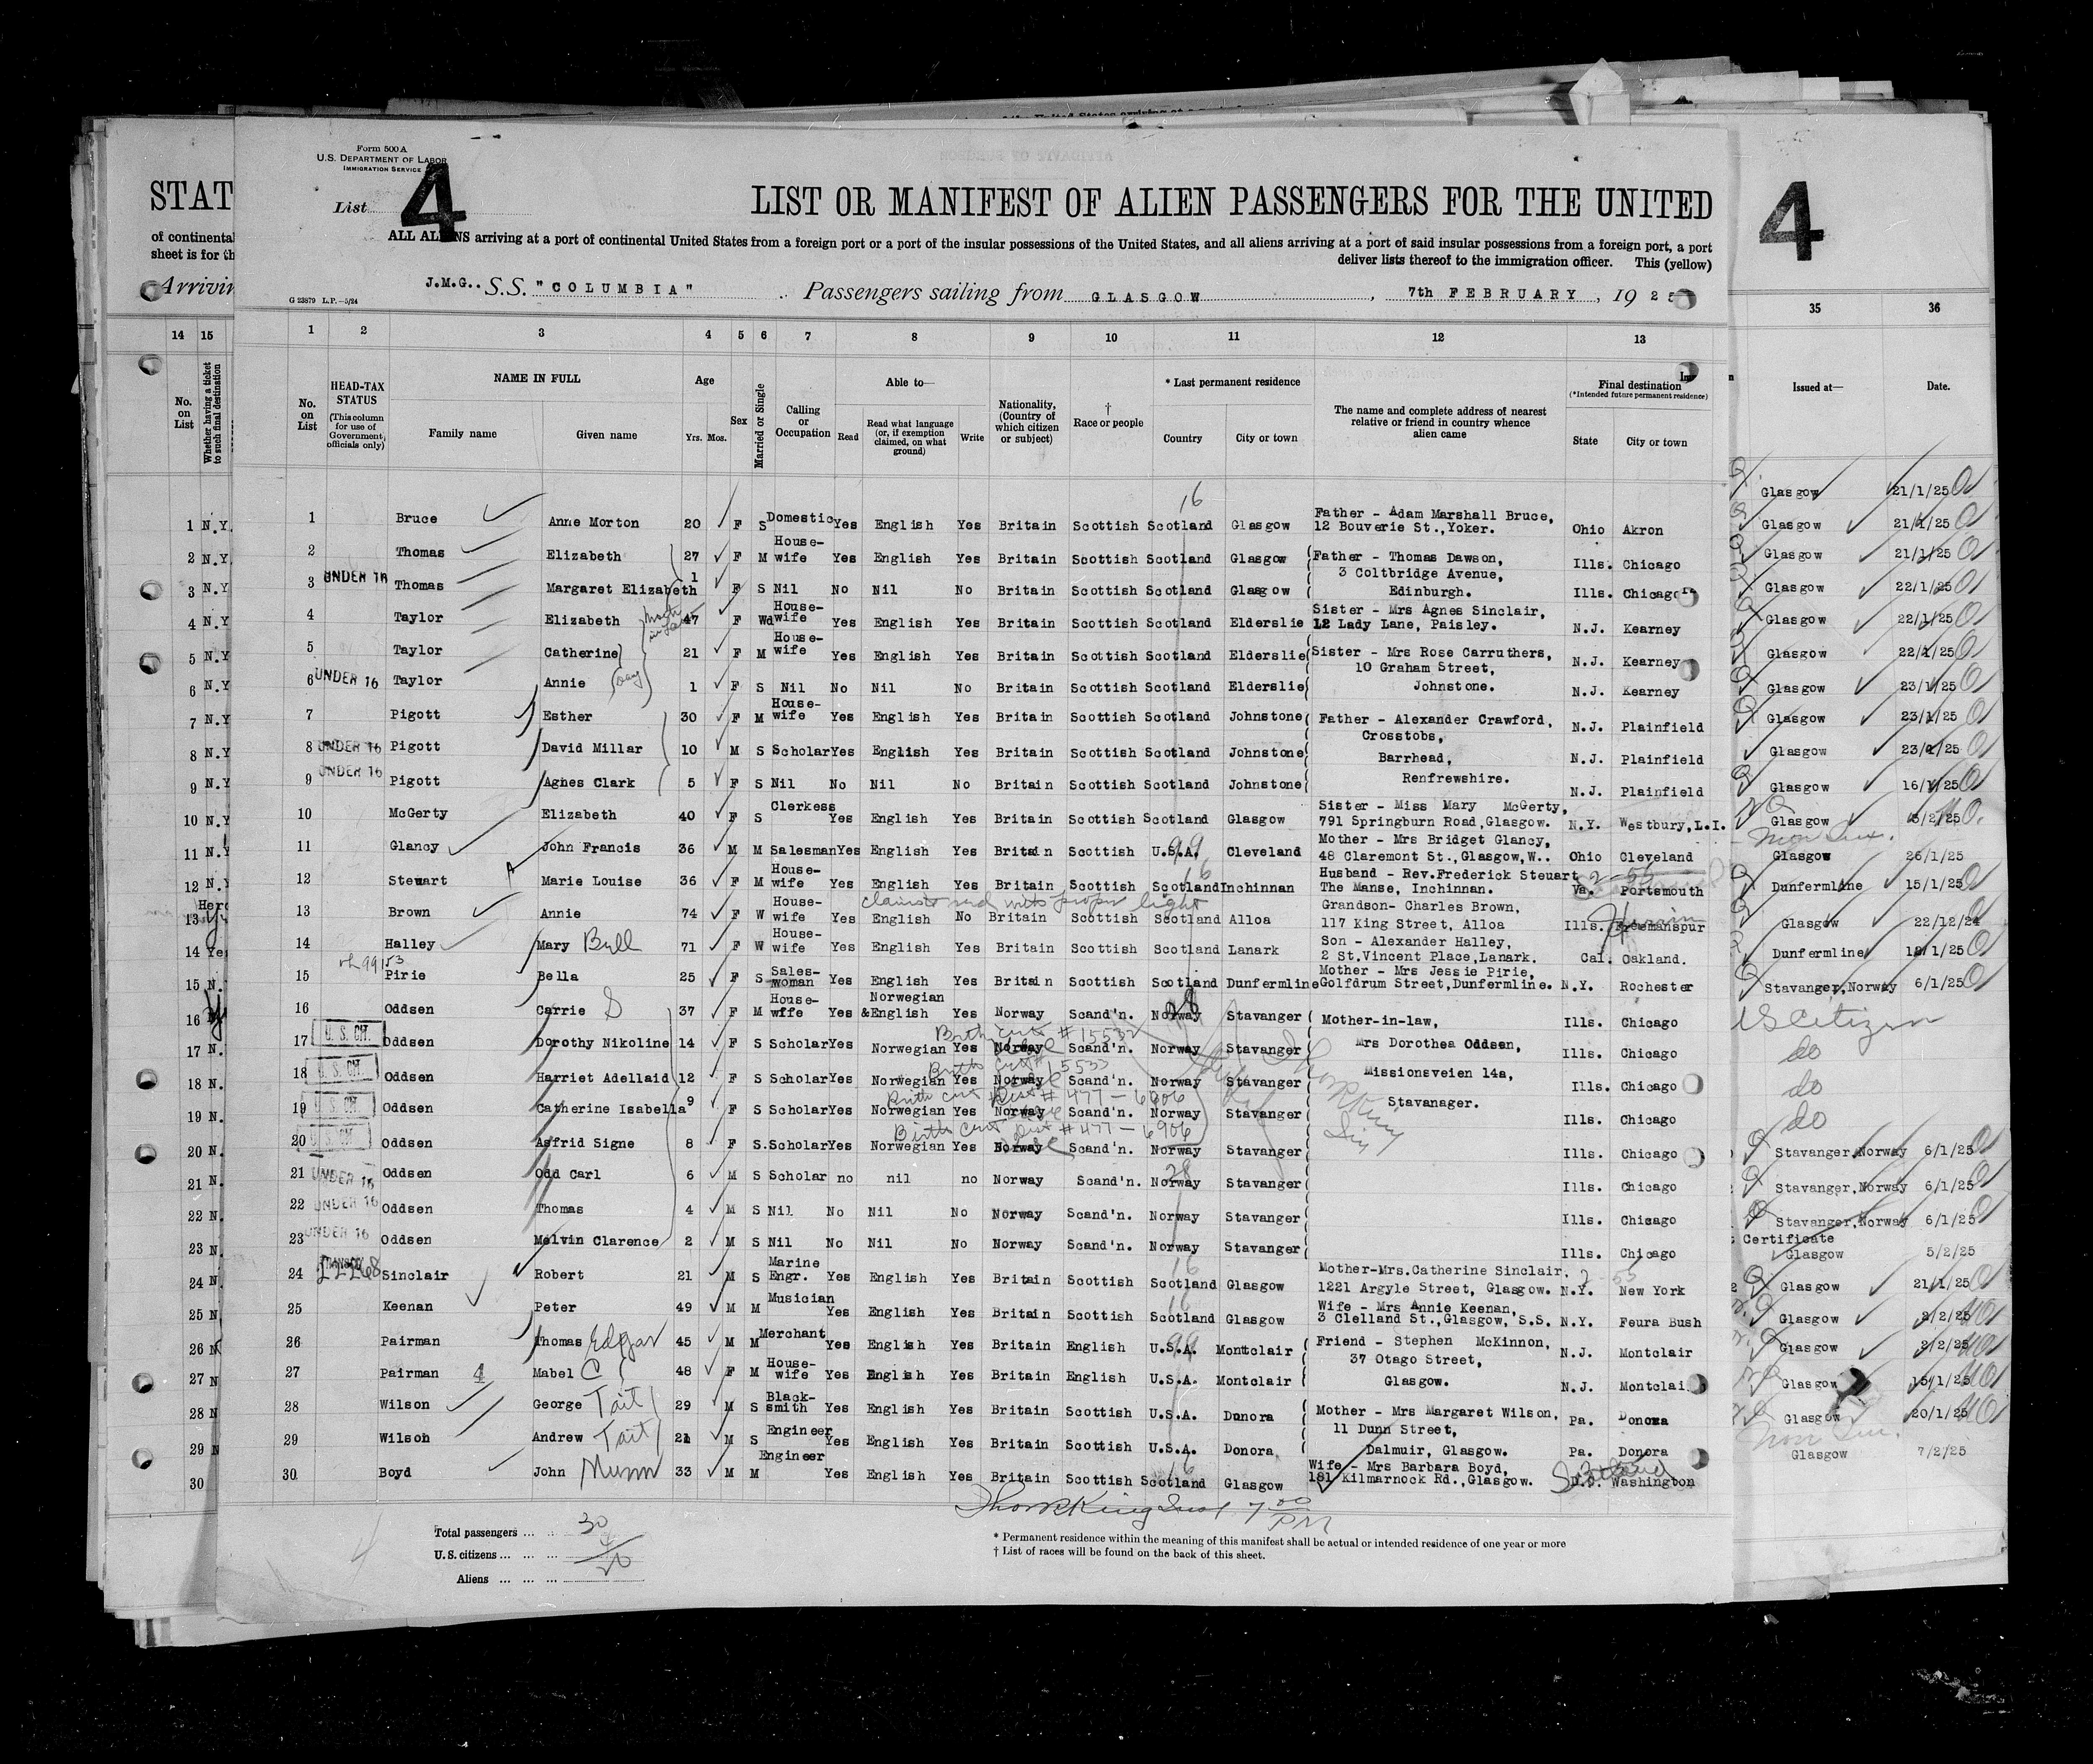 Form 500 A
U.S. DEPARTMENT OF LABOR
IMMIGRATION SERVICE
List 4
STAT
LIST OR MANIFEST OF ALIEN PASSENGERS FOR THE UNITED
4
of continental
sheet is for th
ALL ALIENS arriving at a port of continental United States from a foreign port or a port of the insular possessions of the United States, and all aliens arriving at a port of said insular possessions from a foreign port, a port
deliver lists thereof to the immigration officer. This (yellow)
Arrivin
G 23879 L.P.—5/24
J.M.G.. S.S. "COLUMBIA" Passengers sailing from GLASGOW, 7th FEBRUARY, 19 25
14 15 1 2 3 4 5 6 7 8 9 10 11 12 13 35 36
No. on List
Whether having a ticket to such final destination
No. on List
HEAD-TAX STATUS
(This column for use of Government officials only)
NAME IN FULL
Family name Given name
Age
Yrs. Mos.
Sex
Married or Single
Calling or Occupation
Able to—
Read
Read what language (or, if exemption claimed, on what ground)
Write
Nationality, (Country of which citizen or subject)
† Race or people
* Last permanent residence
Country City or town
The name and complete address of nearest relative or friend in country whence alien came
Final destination
(*Intended future permanent residence)
State City or town
Issued at— Date.
16
1 N.Y. 1 Bruce Anne Morton 20 F S Domestic Yes English Yes Britain Scottish Scotland Glasgow Father - Adam Marshall Bruce, 12 Bouverie St., Yoker. Ohio Akron Glasgow 21/1/25
2 N.Y. 2 Thomas Elizabeth 27 F M House-wife Yes English Yes Britain Scottish Scotland Glasgow Father - Thomas Dawson, Ills. Chicago Glasgow 21/1/25
3 N.Y. 3 UNDER 16 Thomas Margaret Elizabeth 1 F S Nil No Nil No Britain Scottish Scotland Glasgow 3 Coltbridge Avenue, Edinburgh. Ills. Chicago Glasgow 21/1/25
4 N.Y 4 Taylor Elizabeth 47 F Wd House-wife Yes English Yes Britain Scottish Scotland Elderslie Sister - Mrs Agnes Sinclair, 12 Lady Lane, Paisley. N.J. Kearney Glasgow 22/1/25
5 N.Y 5 Taylor Catherine 21 F M House-wife Yes English Yes Britain Scottish Scotland Elderslie Sister - Mrs Rose Carruthers, N.J. Kearney Glasgow 22/1/25
6 N.Y 6 UNDER 16 Taylor Annie 1 F S Nil No Nil No Britain Scottish Scotland Elderslie 10 Graham Street, Johnstone. N.J. Kearney Glasgow 22/1/25
7 N.Y 7 Pigott Esther 30 F M House-wife Yes English Yes Britain Scottish Scotland Johnstone Father - Alexander Crawford, N.J. Plainfield Glasgow 23/1/25
8 N.Y 8 UNDER 16 Pigott David Millar 10 M S Scholar Yes English Yes Britain Scottish Scotland Johnstone Crosstobs, Barrhead, N.J. Plainfield Glasgow 23/1/25
9 N.Y 9 UNDER 16 Pigott Agnes Clark 5 F S Nil No Nil No Britain Scottish Scotland Johnstone Renfrewshire. N.J. Plainfield Glasgow 23/1/25
10 N.Y 10 McGerty Elizabeth 40 F S Clerkess Yes English Yes Britain Scottish Scotland Glasgow Sister - Miss Mary McGerty, 791 Springburn Road, Glasgow. N.Y. Westbury, L.I. Glasgow 16/1/25
11 N.Y 11 Glancy John Francis 36 M M Salesman Yes English Yes Britain Scottish U.S.A. 99 Cleveland Mother - Mrs Bridget Glancy, 48 Claremont St., Glasgow, W.. Ohio Cleveland Glasgow 5/2/25
12 N.Y 12 Stewart Marie Louise 36 F M House-wife Yes English Yes Britain Scottish Scotland 16 Inchinnan Husband - Rev.Frederick Steuart The Manse, Inchinnan. Va. Portsmouth Glasgow 26/1/25
claims to read with proper light
13 13 Brown Annie 74 F W House-wife Yes English No Britain Scottish Scotland Alloa Grandson- Charles Brown, 117 King Street, Alloa Ills. Dunfermline 15/1/25
14 Yes 14 Halley Mary Bell 71 F W House-wife Yes English Yes Britain Scottish Scotland Lanark Son - Alexander Halley, 2 St.Vincent Place, Lanark. Cal. Oakland. Glasgow 22/12/24
15 N. 15 Pirie Bella 25 F S Sales-woman Yes English Yes Britain Scottish Scotland Dunfermline Mother - Mrs Jessie Pirie, Golfdrum Street, Dunfermline. N.Y. Rochester Dunfermline
16 16 Oddsen Carrie S 37 F M House-wffe Yes Norwegian &English Yes Norway Scand'n. Norway Stavanger Mother-in-law, Ills. Chicago Stavanger, Norway 6/1/25
Birth Cert # 15532
17 N. 17 U. S. CIT. Oddsen Dorothy Nikoline 14 F S Scholar Yes Norwegian Yes Norway Scand'n. Norway Stavanger Mrs Dorothea Oddsen, Ills. Chicago US Citizen
Birth Cert # 15533
18 N. 18 U. S. CIT. Oddsen Harriet Adellaid 12 F S Scholar Yes Norwegian Yes Norway Scand'n. Norway Stavanger Missionsveien 14a, Ills. Chicago do
Birth Cert Dist # 477 - 6906
19 N. 19 U. S. CIT. Oddsen Catherine Isabella 9 F S Scholar Yes Norwegian Yes Norway Scand'n. Norway Stavanger Stavanager. Ills. Chicago do
Birth Cert Dist # 477 - 6906
20 N. 20 U. S. CIT. Oddsen Asfrid Signe 8 F S. Scholar Yes Norwegian Yes Norway Scand'n. Norway Stavanger Ills. Chicago do
21 N. 21 UNDER 16 Oddsen Odd Carl 6 M S Scholar no nil no Norway Scand'n. Norway 28 Stavanger Ills. Chicago Stavanger, Norway 6/1/25
22 N. 22 UNDER 16 Oddsen Thomas 4 M S Nil No Nil No Norway Scand'n. Norway Stavanger Ills. Chicago Stavanger, Norway 6/1/25
23 N. 23 UNDER 16 Oddsen Melvin Clarence 2 M S Nil No Nil No Norway Scand'n. Norway Stavanger Ills. Chicago Stavanger, Norway 6/1/25
24 N. 24 Sinclair Robert 21 M S Marine Engr. Yes English Yes Britain Scottish Scotland 16 Glasgow Mother-Mrs.Catherine Sinclair, 1221 Argyle Street, Glasgow. N.Y. New York Certificate Glasgow 5/2/25
25 N 25 Keenan Peter 49 M M Musician Yes English Yes Britain Scottish Scotland 16 Glasgow Wife - Mrs Annie Keenan, 3 Clelland St., Glasgow, S.S. N.Y. Feura Bush Glasgow 21/1/25
26 N 26 Pairman Thomas Edgar 45 M M Merchant Yes English Yes Britain English U.S.A. 99 Montclair Friend - Stephen McKinnon, N.J. Montclair Glasgow 2/2/25
27 N 27 Pairman Mabel C 48 F M House-wife Yes English Yes Britain English U.S.A. Montclair 37 Otago Street, Glasgow. N.J. Montclair Glasgow 2/2/25
28 N 28 Wilson George Tait 29 M S Black-smith Yes English Yes Britain Scottish U.S.A. Donora Mother - Mrs Margaret Wilson, Pa. Donora Glasgow 15/1/25
29 N 29 Wilson Andrew Tait 21 M S Engineer Yes English Yes Britain Scottish U.S.A. Donora 11 Dunn Street, Dalmuir, Glasgow. Pa. Donora Glasgow 20/1/25
30 30. Boyd John Munn 33 M M Engineer Yes English Yes Britain Scottish Scotland 16 Glasgow Wife - Mrs Barbara Boyd, 181 Kilmarnock Rd., Glasgow. D.C. Washington Glasgow 7/2/25
7 00 PM
Total passengers ... 30
U. S. citizens ... ... ...
Aliens ... ... ...
* Permanent residence within the meaning of this manifest shall be actual or intended residence of one year or more
† List of races will be found on the back of this sheet.